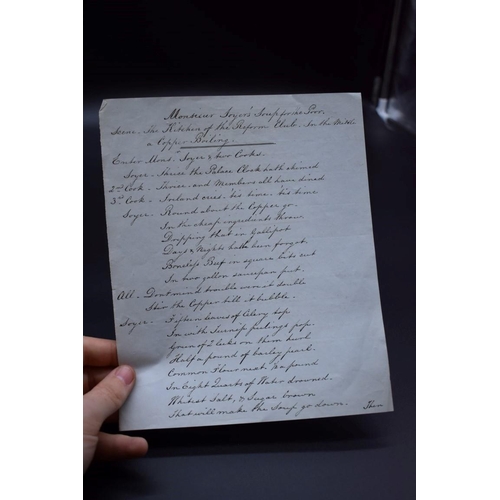 Monsieur Soyer's Soup for the Poor.
Scene. The Kitchen of the Reform Club. In the Middle
a Copper Boiling.
Enter Monsr Soyer & two Cooks.
Soyer. Thrice the Palace Clock hath chimed
2nd Cook. Thrice. and Members all have dined
3rd Cook. Ireland cries, 'tis time, 'tis time.
Soyer. Round about the Copper go.
In the cheap ingredients throw.
Dripping that in Gallipot
Days & Nights hath been forgot
Boneless Beef in square bits cut
In two gallon saucepan put.
All. Dont mind trouble were it double
Stir the Copper till it bubble.
Soyer. Fifteen leaves of Celery top
In with Turnip peelings pop.
Green of 2 leeks on them hurl
Half a pound of barley pearl.
Common Flour next. ½ a pound
In Eight Quarts of Water drowned.
Whitest Salt, & Sugar brown
That will make the Soup go down.
Then